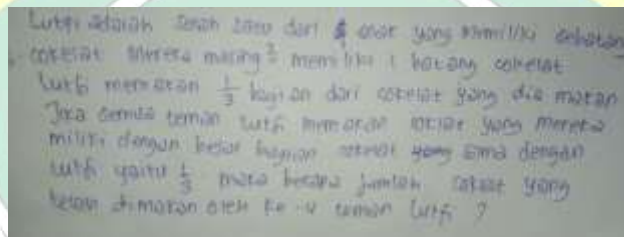 Lutfi adalah salah satu dari 5 anak yang memiliki sebatang
cokelat mereka masing² memiliki 1 batang cokelat
Lutfi memakan 1/3 bagian dari cokelat yang dia makan
Jika semua teman Lutfi memakan coklat yang mereka
miliki dengan besar bagian cokelat yang sama dengan
Lutfi yaitu 1/3 maka berapa jumlah cokelat yang
telah dimakan oleh ke-4 teman Lutfi ?